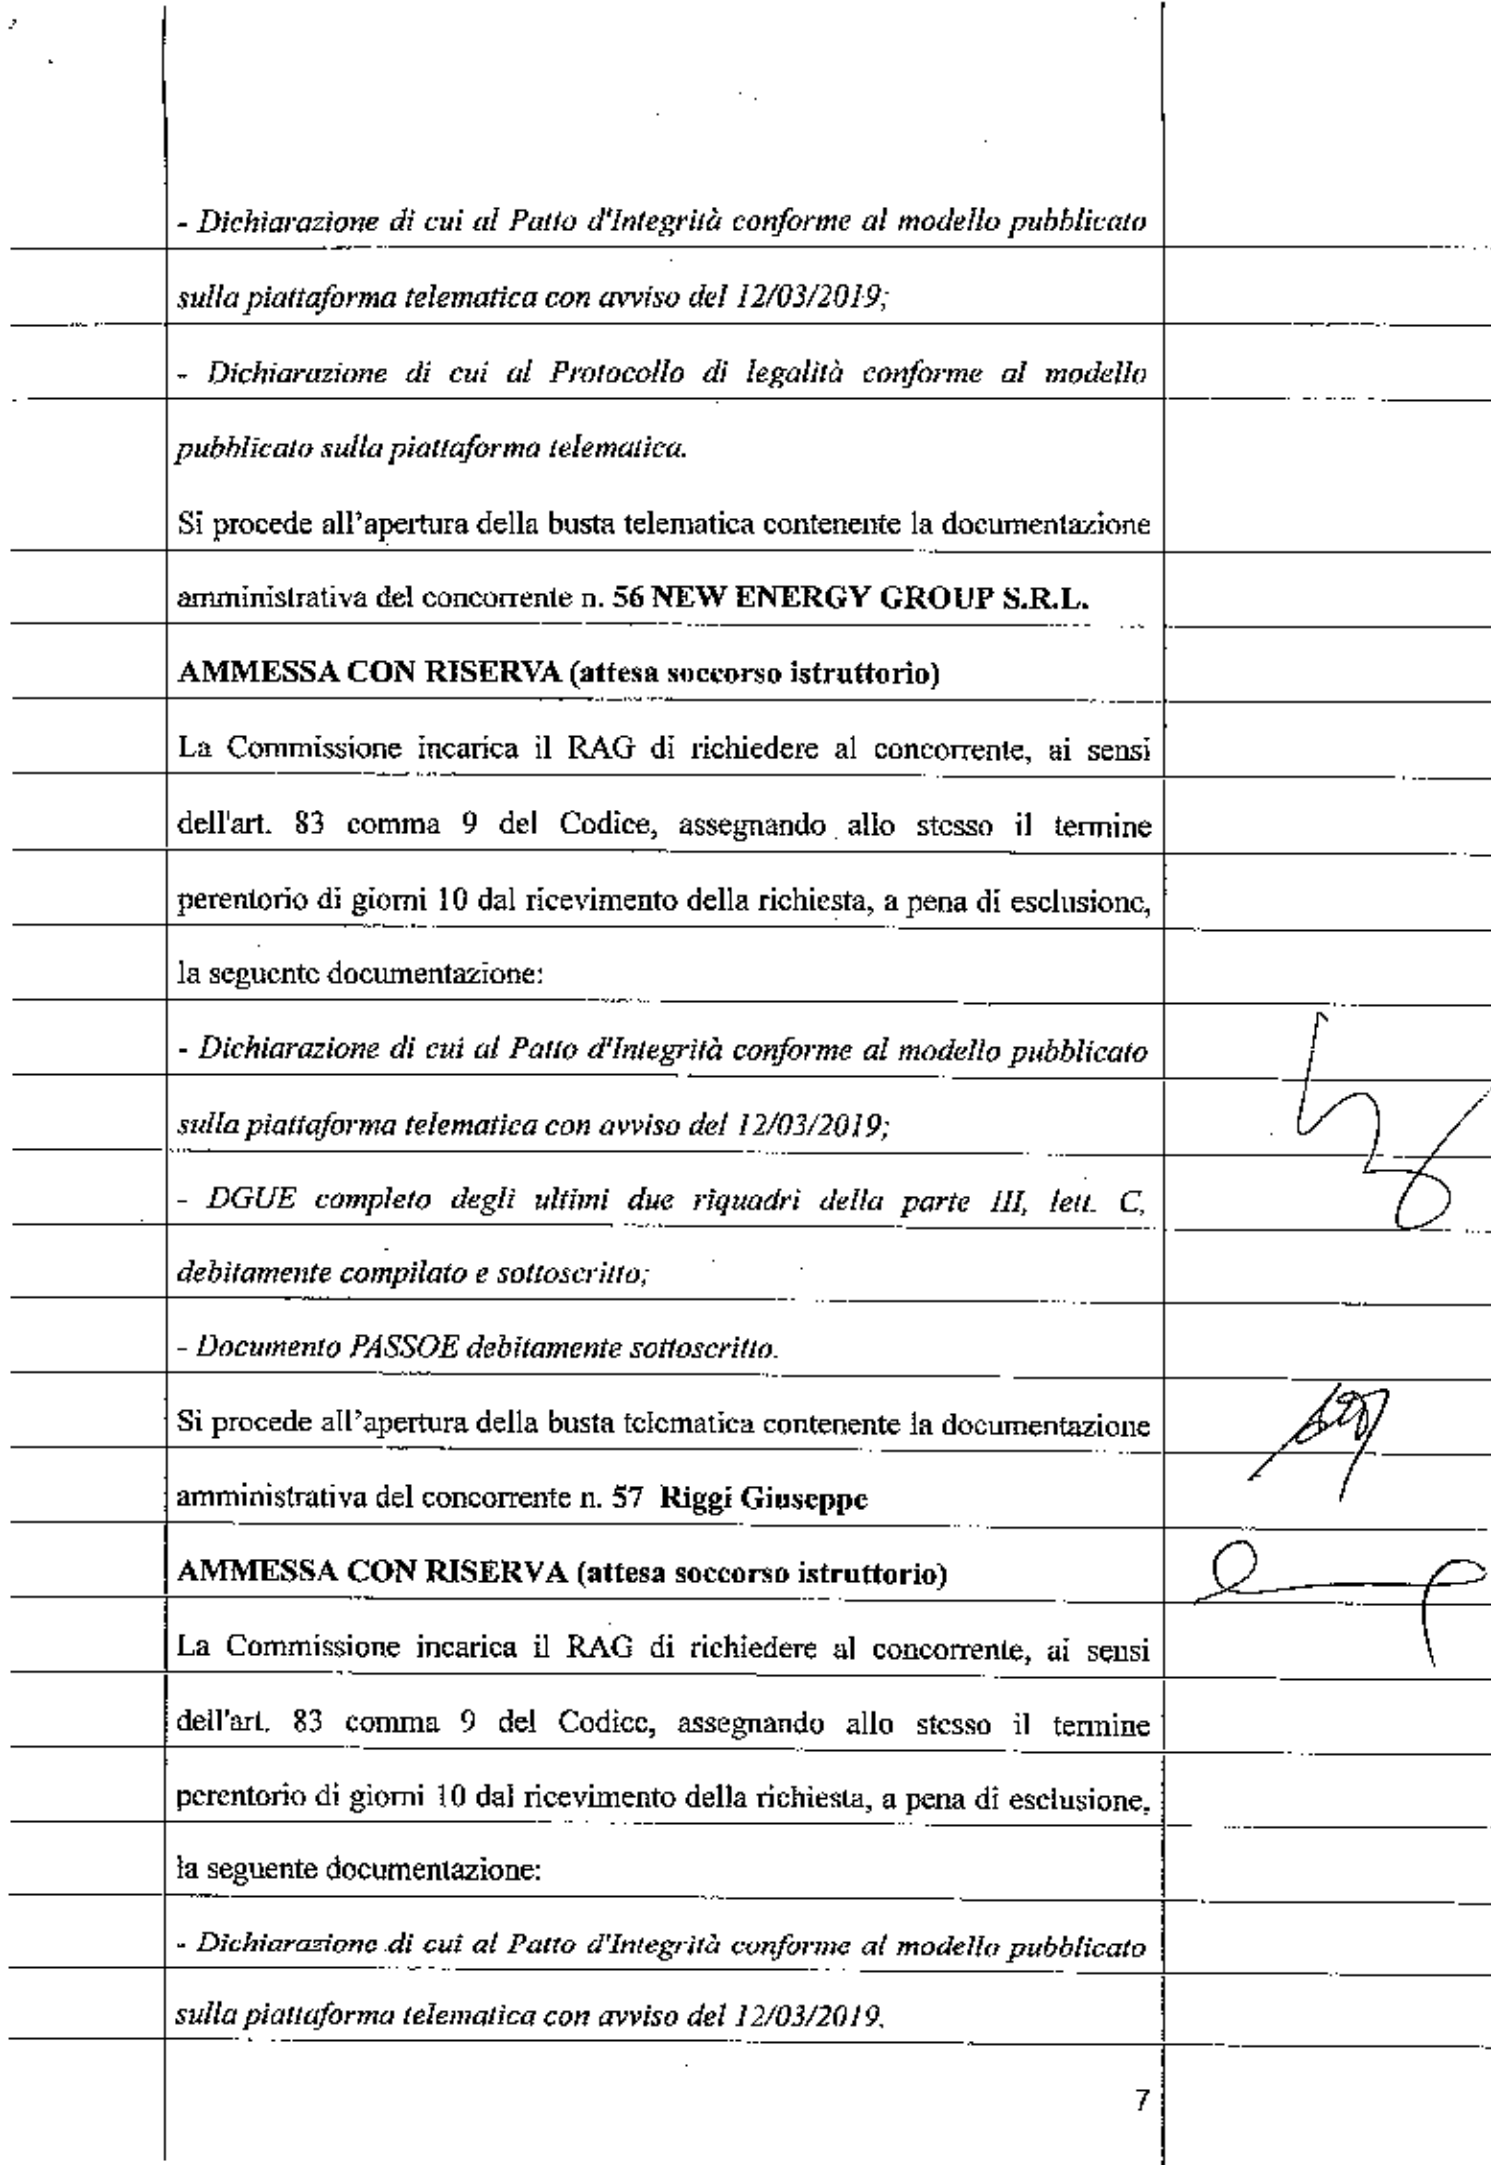 - Dichiarazione di cui al Patto d'Integrità conforme al modello pubblicato
sulla piattaforma telematica con avviso del 12/03/2019;
- Dichiarazione di cui al Protocollo di legalità conforme al modello
pubblicato sulla piattaforma telematica.
Si procede all'apertura della busta telematica contenente la documentazione
amministrativa del concorrente n. 56 NEW ENERGY GROUP S.R.L.
AMMESSA CON RISERVA (attesa soccorso istruttorio)
La Commissione incarica il RAG di richiedere al concorrente, ai sensi
dell'art. 83 comma 9 del Codice, assegnando allo stesso il termine
perentorio di giorni 10 dal ricevimento della richiesta, a pena di esclusione,
la seguente documentazione:
- Dichiarazione di cui al Patto d'Integrità conforme al modello pubblicato
sulla piattaforma telematica con avviso del 12/03/2019;
- DGUE completo degli ultimi due riquadri della parte III, lett. C,
debitamente compilato e sottoscritto;
- Documento PASSOE debitamente sottoscritto.
Si procede all'apertura della busta telematica contenente la documentazione
amministrativa del concorrente n. 57 Riggi Giuseppe
AMMESSA CON RISERVA (attesa soccorso istruttorio)
La Commissione incarica il RAG di richiedere al concorrente, ai sensi
dell'art. 83 comma 9 del Codice, assegnando allo stesso il termine
perentorio di giorni 10 dal ricevimento della richiesta, a pena di esclusione,
la seguente documentazione:
- Dichiarazione di cui al Patto d'Integrità conforme al modello pubblicato
sulla piattaforma telematica con avviso del 12/03/2019.
7